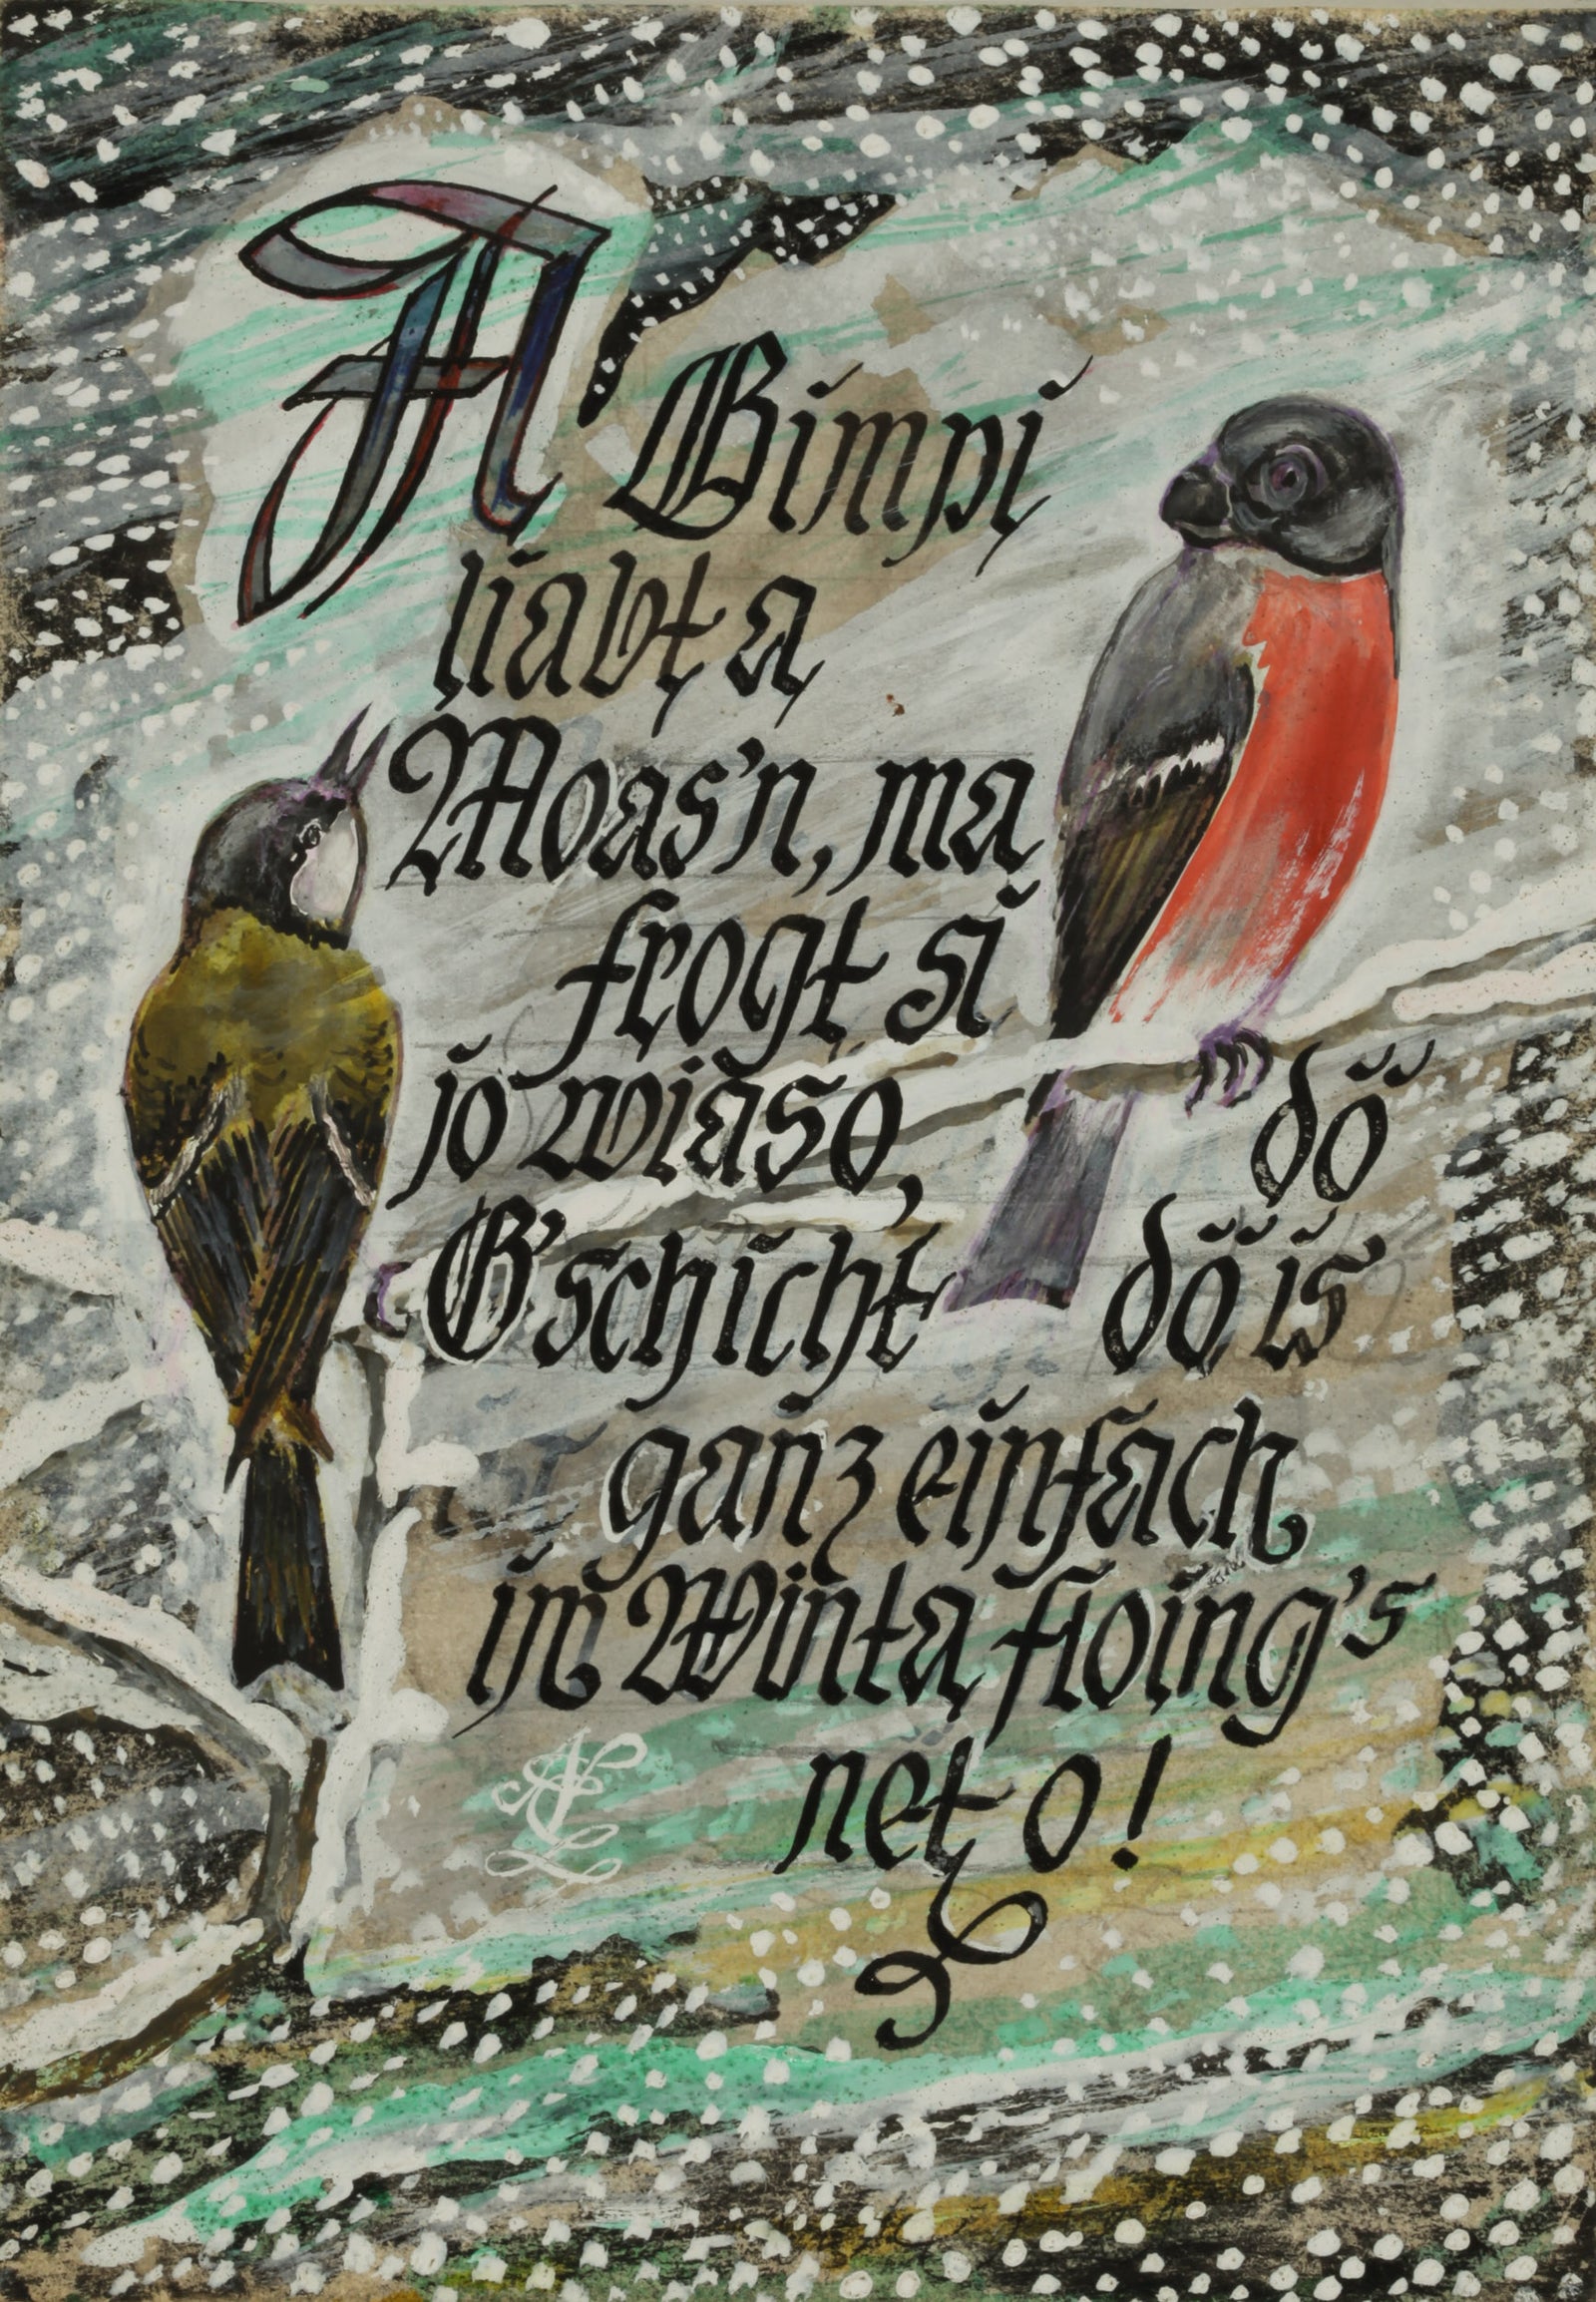 A Bimpi
liabt a
Moas'n, ma
frogt si
jo wiaso,
dö
G'schicht dö is
ganz einfach
im Winta floing's
net o!